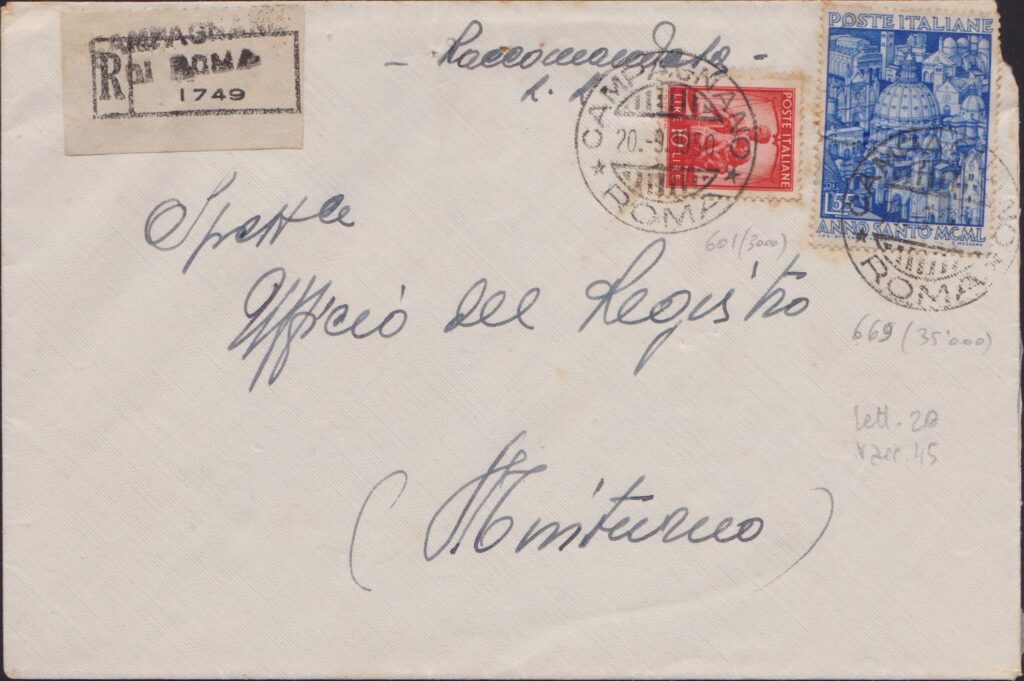 CAMPAGNANO
R DI ROMA
1749
- Raccomandata -
CAMPAGNANO
20.-9.1950
ROMA
POSTE ITALIANE
LIRE 10 LIRE
POSTE ITALIANE
L.55
ANNO SANTO MCML
CAMPAGNANO
ROMA
601 (3000)
Spett.le
Ufficio del Registro
669 (35'000)
lett. 20
racc. 45
(Minturno)